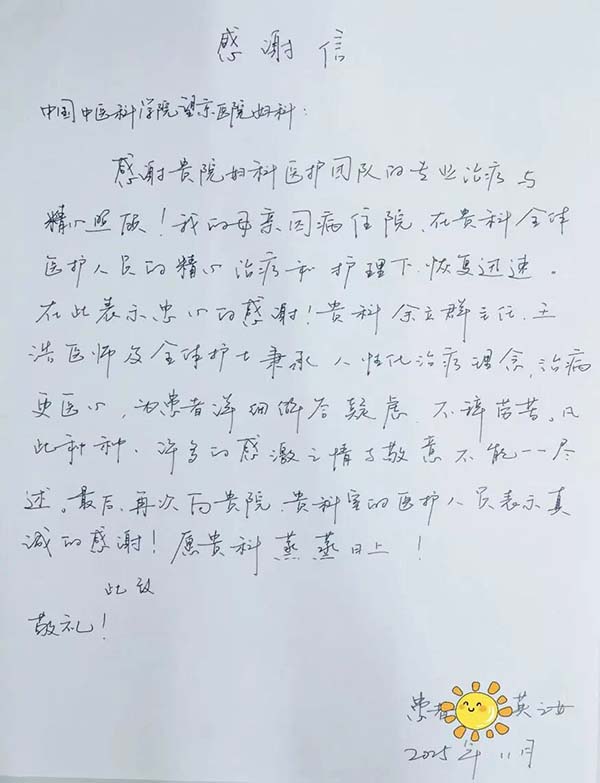 感谢信
中国中医科学院望京医院妇科：
感谢贵院妇科医护团队的专业治疗与
精心照顾！我的母亲因病住院，在贵科全体
医护人员的精心治疗和护理下，恢复迅速。
在此表示忠心的感谢！贵科余立群主任、王
浩医师及全体护士秉承人性化治疗理念，治病
更医心，为患者详细解答疑虑，不辞劳苦。凡
此种种，许多的感激之情与敬意不能一一尽
述。最后，再次向贵院、贵科室的医护人员表示真
诚的感谢！愿贵科蒸蒸日上！
此致
敬礼！
患者 英之女
2025年11月